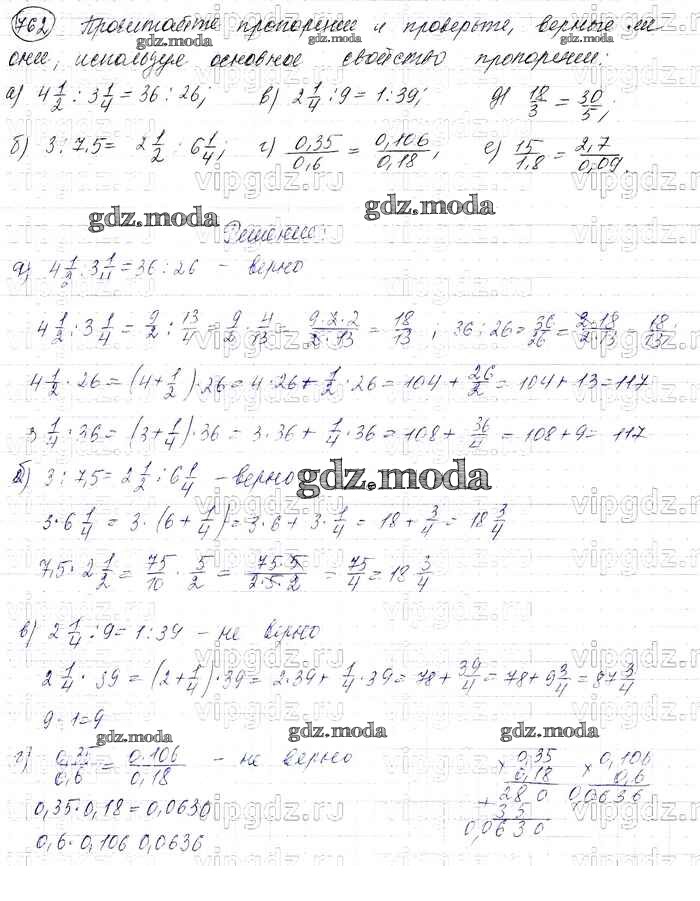 762 Прочитайте пропорции и проверьте, верные ли
они, используя основное свойство пропорции:
а) 4 1/2 : 3 1/4 = 36 : 26; в) 2 1/4 : 9 = 1 : 39; д) 18/3 = 30/5;
б) 3 : 7,5 = 2 1/2 : 6 1/4; г) 0,35/0,6 = 0,106/0,18; е) 15/1,8 = 2,7/0,09.
gdz.moda gdz.moda
Решение:
а) 4 1/2 : 3 1/4 = 36 : 26 – верно
4 1/2 : 3 1/4 = 9/2 : 13/4 = 9/2 · 4/13 = 9·2·2/2·13 = 18/13 ; 36 : 26 = 36/26 = 2·18/2·13 = 18/13;
4 1/2 · 26 = (4 + 1/2) · 26 = 4 · 26 + 1/2 · 26 = 104 + 26/2 = 104 + 13 = 117
3 1/4 · 36 = (3 + 1/4) · 36 = 3 · 36 + 1/4 · 36 = 108 + 36/4 = 108 + 9 = 117
б) 3 : 7,5 = 2 1/2 : 6 1/4 – верно
gdz.moda
3 · 6 1/4 = 3 · (6 + 1/4) = 3 · 6 + 3 · 1/4 = 18 + 3/4 = 18 3/4
7,5 · 2 1/2 = 75/10 · 5/2 = 75·5/2·5·2 = 75/4 = 18 3/4
в) 2 1/4 : 9 = 1 : 39 – не верно
2 1/4 · 39 = (2 + 1/4) · 39 = 2 · 39 + 1/4 · 39 = 78 + 39/4 = 78 + 9 3/4 = 87 3/4
9 · 1 = 9
gdz.moda gdz.moda gdz.moda
г) 0,35/0,6 = 0,106/0,18 – не верно
0,35 · 0,18 = 0,0630
0,6 · 0,106 0,0636
× 0,35 × 0,106
0,18 0,6
280 0,0636
+ 35
0,0630